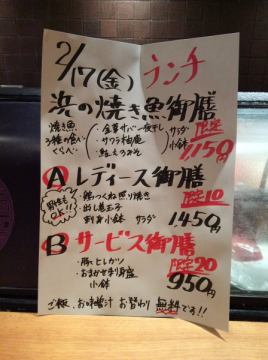 2/17(金) ランチ
浜の焼き魚御膳
焼き魚
3種の食べ
くらべ
・金華サバ一夜干し
・サワラ柚庵
・鮭えのみそ
サラダ
小鉢
限定
1,150円
A レディース御膳
男性も
OK!!
・鶏つくね照り焼き
・出し巻玉子
刺身小鉢 サラダ
限定10
1,450円
B サービス御膳
・豚ヒレカツ
・おまかせ手巻寿司
小鉢
限定20
950円
ご飯、お味噌汁 お替わり 無料です!!